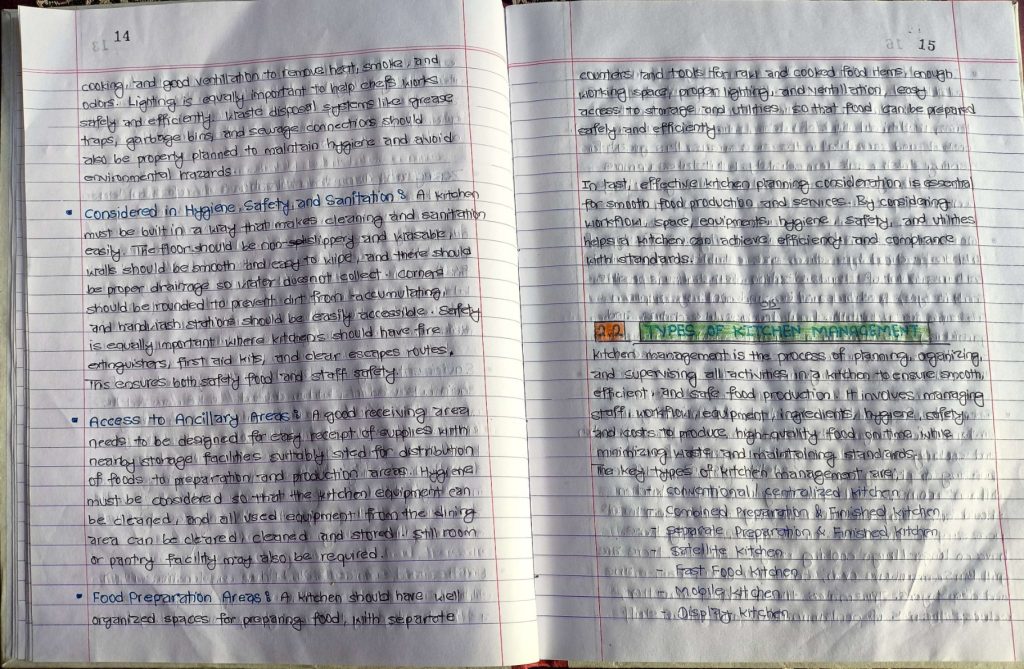 14
cooking, and good ventilation to remove heat, smoke, and
odors. Lighting is equally important to help chefs works
safely and efficiently. Waste disposal systems like grease
traps, garbage bins, and sewage connections should
also be properly planned to maintain hygiene and avoid
environmental hazards.
• Considered in Hygiene, Safety, and Sanitation : A kitchen
must be built in a way that makes cleaning and sanitation
easily. The floor should be non-slippery and washable,
walls should be smooth and easy to wipe, and there should
be proper drainage so water doesnot collect. Corners
should be rounded to prevent dirt from accumulating,
and handwash stations should be easily accessible. Safety
is equally important where kitchens should have fire
extinguishers, first aid kits, and clear escapes routes.
This ensures both safety food and staff safety.
• Access to Ancillary Areas : A good receiving area
needs to be designed for easy receipt of supplies with
nearby storage facilities suitably sited for distribution
of foods to preparation and production areas. Hygiene
must be considered so that the kitchen equipment can
be cleaned, and all used equipment from the dining
area can be cleared, cleaned and stored. Still room
or pantry facility may also be required.
• Food Preparation Areas : A kitchen should have well
organized spaces for preparing food, with separate
15
counters and tools for raw and cooked food items, enough
working space, proper lighting, and ventilation, easy
access to storage and utilities, so that food can be prepared
safely and efficiently.
In fast, effective kitchen planning consideration is essential
for smooth food production and services. By considering
workflow, space, equipments, hygiene, safety, and utilities
helps a kitchen can achieve efficiency and compliance
with standards.
2.2. TYPES OF KITCHEN MANAGEMENT
Kitchen management is the process of planning, organizing,
and supervising all activities in a kitchen to ensure smooth,
efficient, and safe food production. It involves managing
staff, workflow, equipment, ingredients, hygiene, safety,
and costs to produce high-quality food on time while
minimizing waste and maintaining standards.
The key types of kitchen management are,
- conventional centralized kitchen
- Combined Preparation & Finished Kitchen
- Separate Preparation & Finished Kitchen
- Satellite Kitchen
- Fast Food Kitchen
- Mobile Kitchen
- Display Kitchen